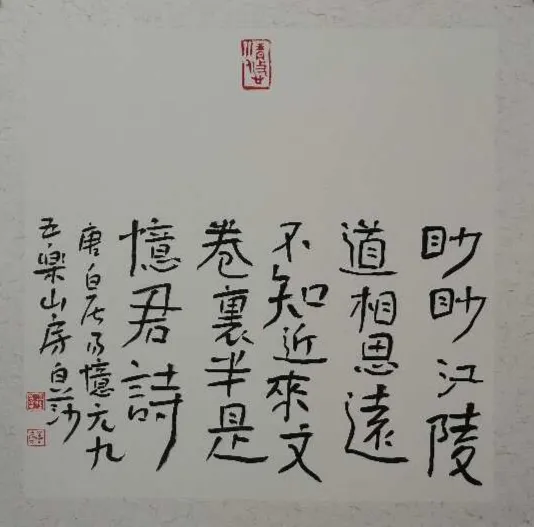 眇眇江陵
道相思遠
不知近來文
卷裏半是
憶君詩
唐白居易憶元九
五樂山房沙